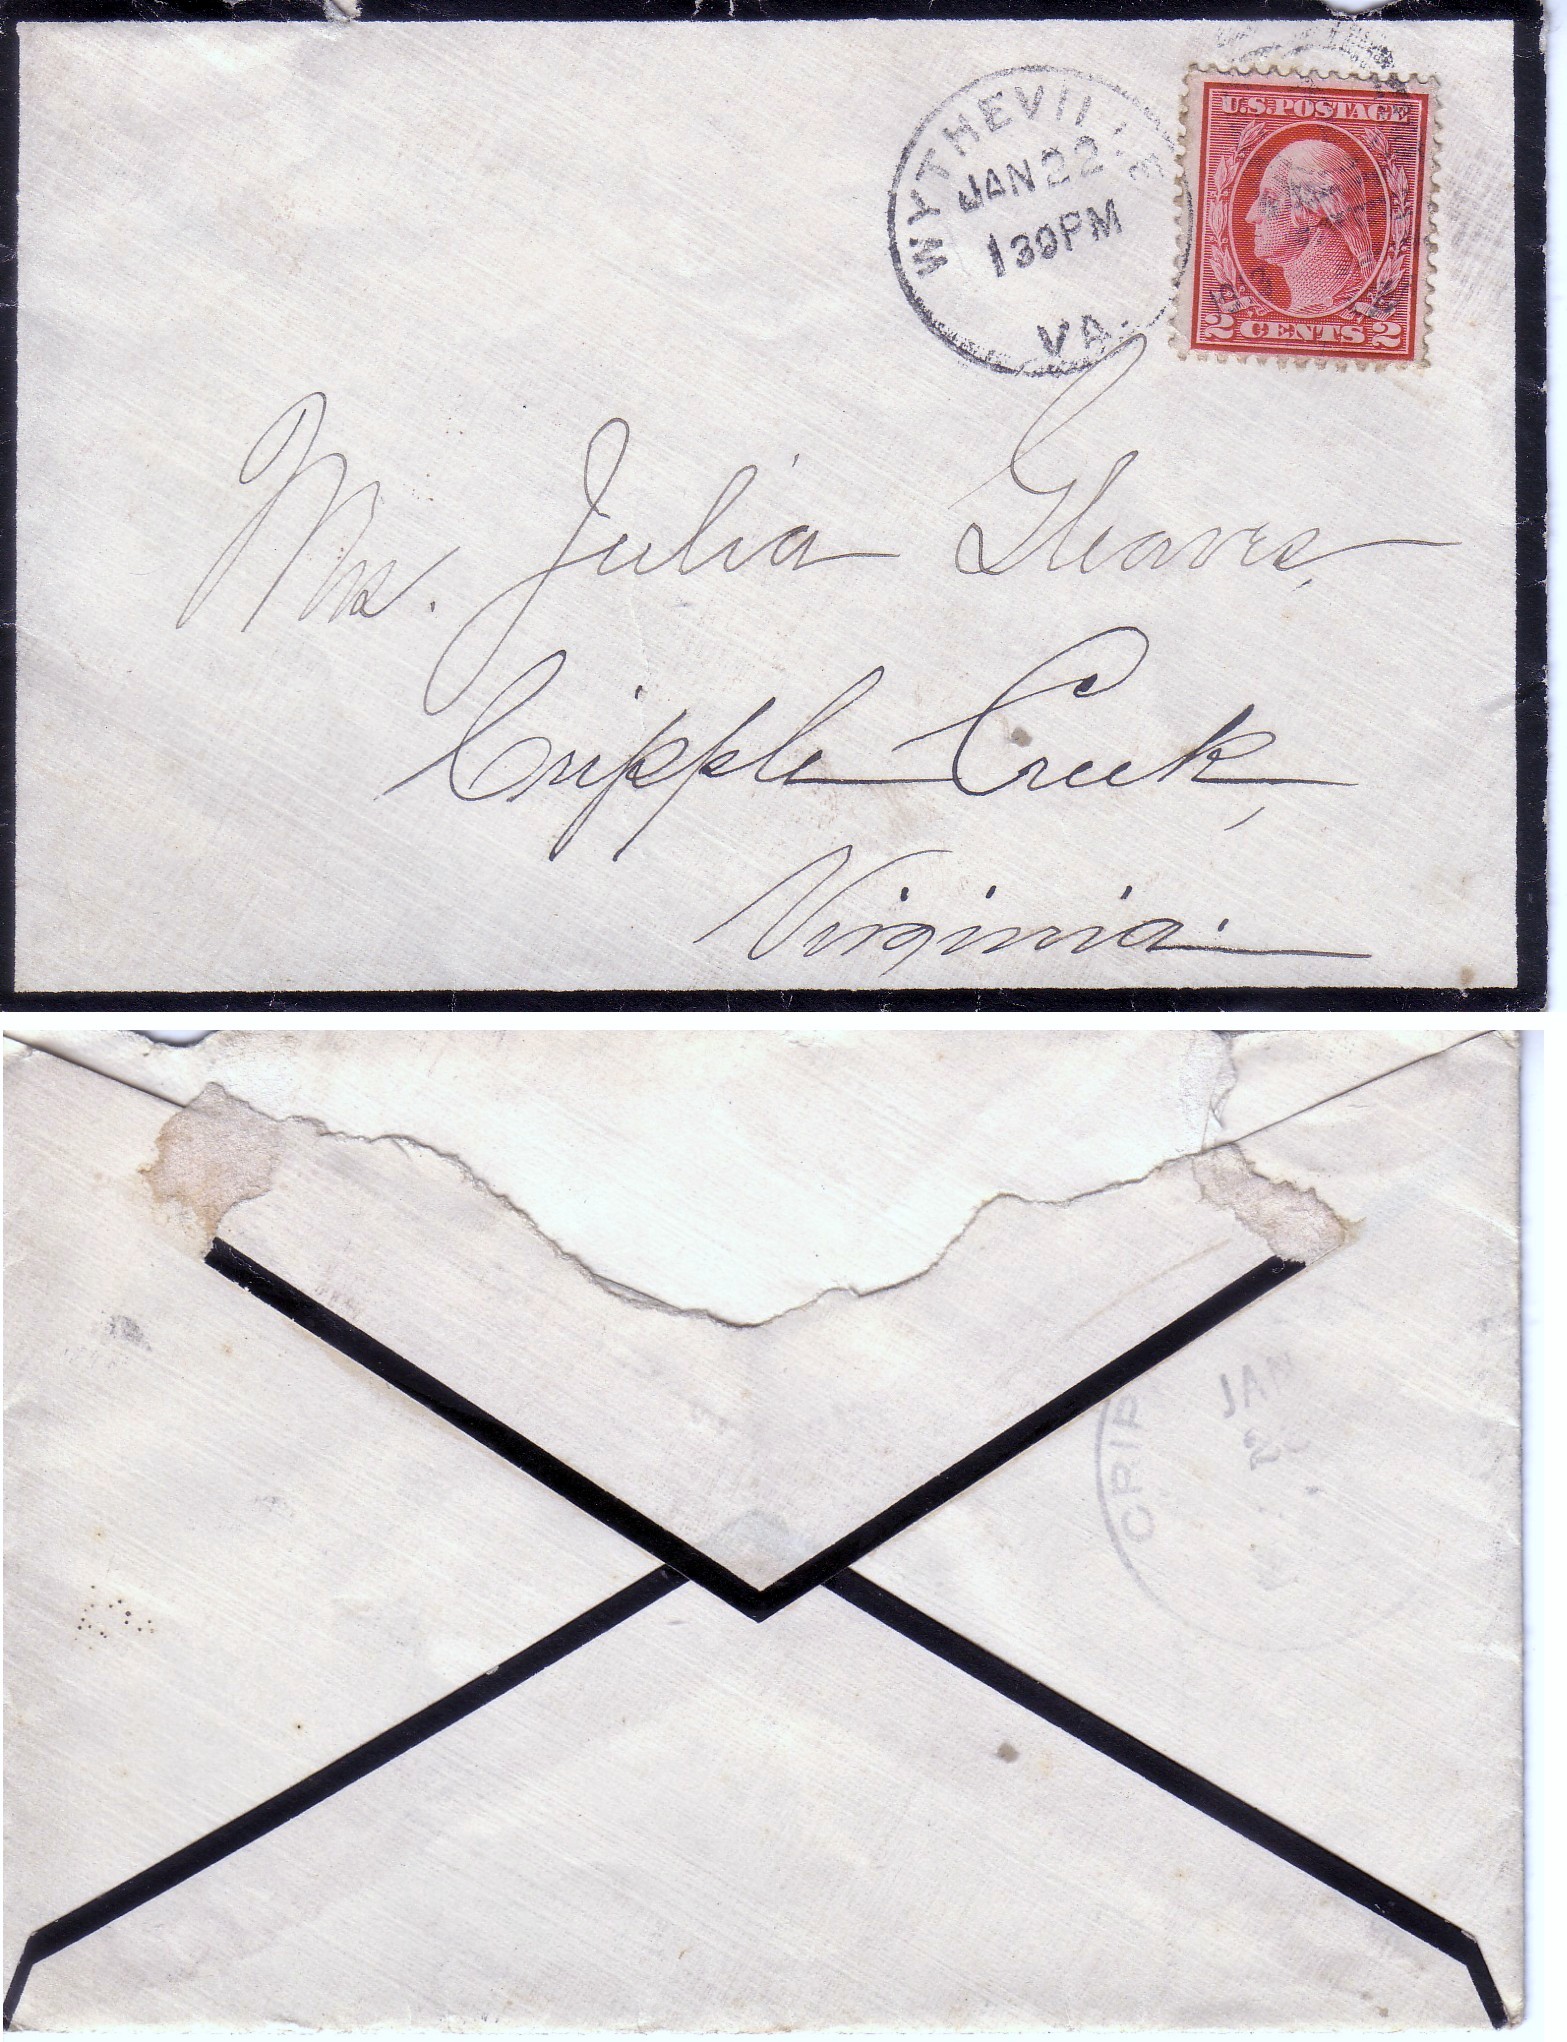 WYTHEVILLE
JAN 22
1 30 PM
VA.
U.S. POSTAGE
2 CENTS 2
Mrs. Julia Gleaves,
Cripple Creek,
Virginia.
CRIP
JAN